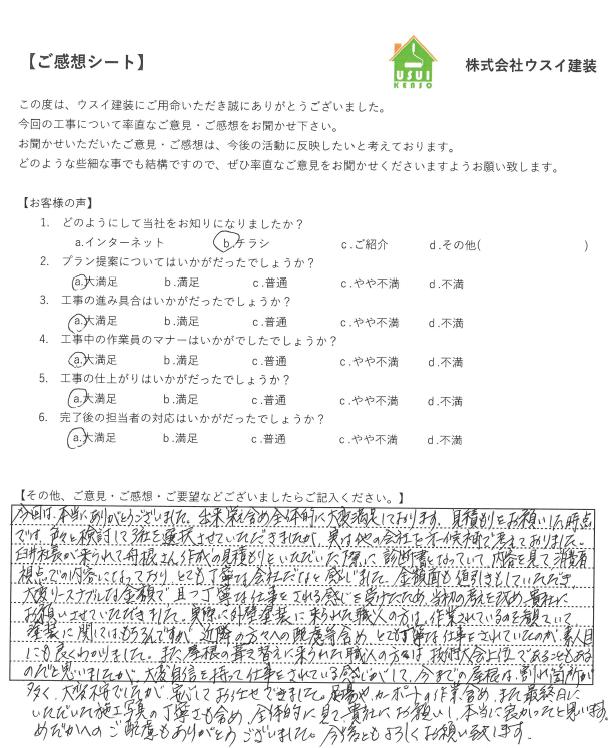 【ご感想シート】
USUI
KENSO
株式会社ウスイ建装
この度は、ウスイ建装にご用命いただき誠にありがとうございました。
今回の工事について率直なご意見・ご感想をお聞かせ下さい。
お聞かせいただいたご意見・ご感想は、今後の活動に反映したいと考えております。
どのような些細な事でも結構ですので、ぜひ率直なご意見をお聞かせくださいますようお願い致します。
【お客様の声】
1. どのようにして当社をお知りになりましたか？
a.インターネット b.チラシ c.ご紹介 d.その他( )
2. プラン提案についてはいかがだったでしょうか？
a.大満足 b.満足 c.普通 c.やや不満 d.不満
3. 工事の進み具合はいかがだったでしょうか？
a.大満足 b.満足 c.普通 c.やや不満 d.不満
4. 工事中の作業員のマナーはいかがでしたでしょうか？
a.大満足 b.満足 c.普通 c.やや不満 d.不満
5. 工事の仕上がりはいかがだったでしょうか？
a.大満足 b.満足 c.普通 c.やや不満 d.不満
6. 完了後の担当者の対応はいかがだったでしょうか？
a.大満足 b.満足 c.普通 c.やや不満 d.不満
【その他、ご意見・ご感想・ご要望などございましたらご記入ください。】
今回は、本当にありがとうございました。出来栄え含め全体的に大変満足しております。見積もりをお願いした時点
では、色々と検討して3社を選択させていただきましたが、実は他の会社を本命候補で考えておりました。
臼井社長が来られて舟根さん作成の見積もりをいただいた際に、診断書となっていて、内容を見て消費者
視点での内容になっており、とても丁寧な会社だなと感じました。金額面も値引きもしていただき
大変リーズナブルな金額で、且つ丁寧な仕事をされる感じを受けたため、当初の考えを改め、貴社に
お願いさせていただきました。実際に外壁塗装に来られた職人の方は、作業されているのを観ていて
塗装に関してはもちろんですが、近隣の方々への配慮等含め、とても丁寧な仕事をされていたのが、素人目
にも良くわかりました。また、屋根の葺き替えに来られた職人の方々は、技術大会上位であることもある
のだと思いましたが、大変自信を持って仕事をされている感じがして、今までの屋根は、割れ箇所が
多く、大変不安でしたが、安心してお任せできました。足場や、カーポートの作業含め、また最終日に
いただいた施工写真の丁寧さも含め、全体的に見て貴社にお願いし、本当に良かったと思います。
めだかへのご配慮もありがとうございました。今後ともよろしくお願い致します。